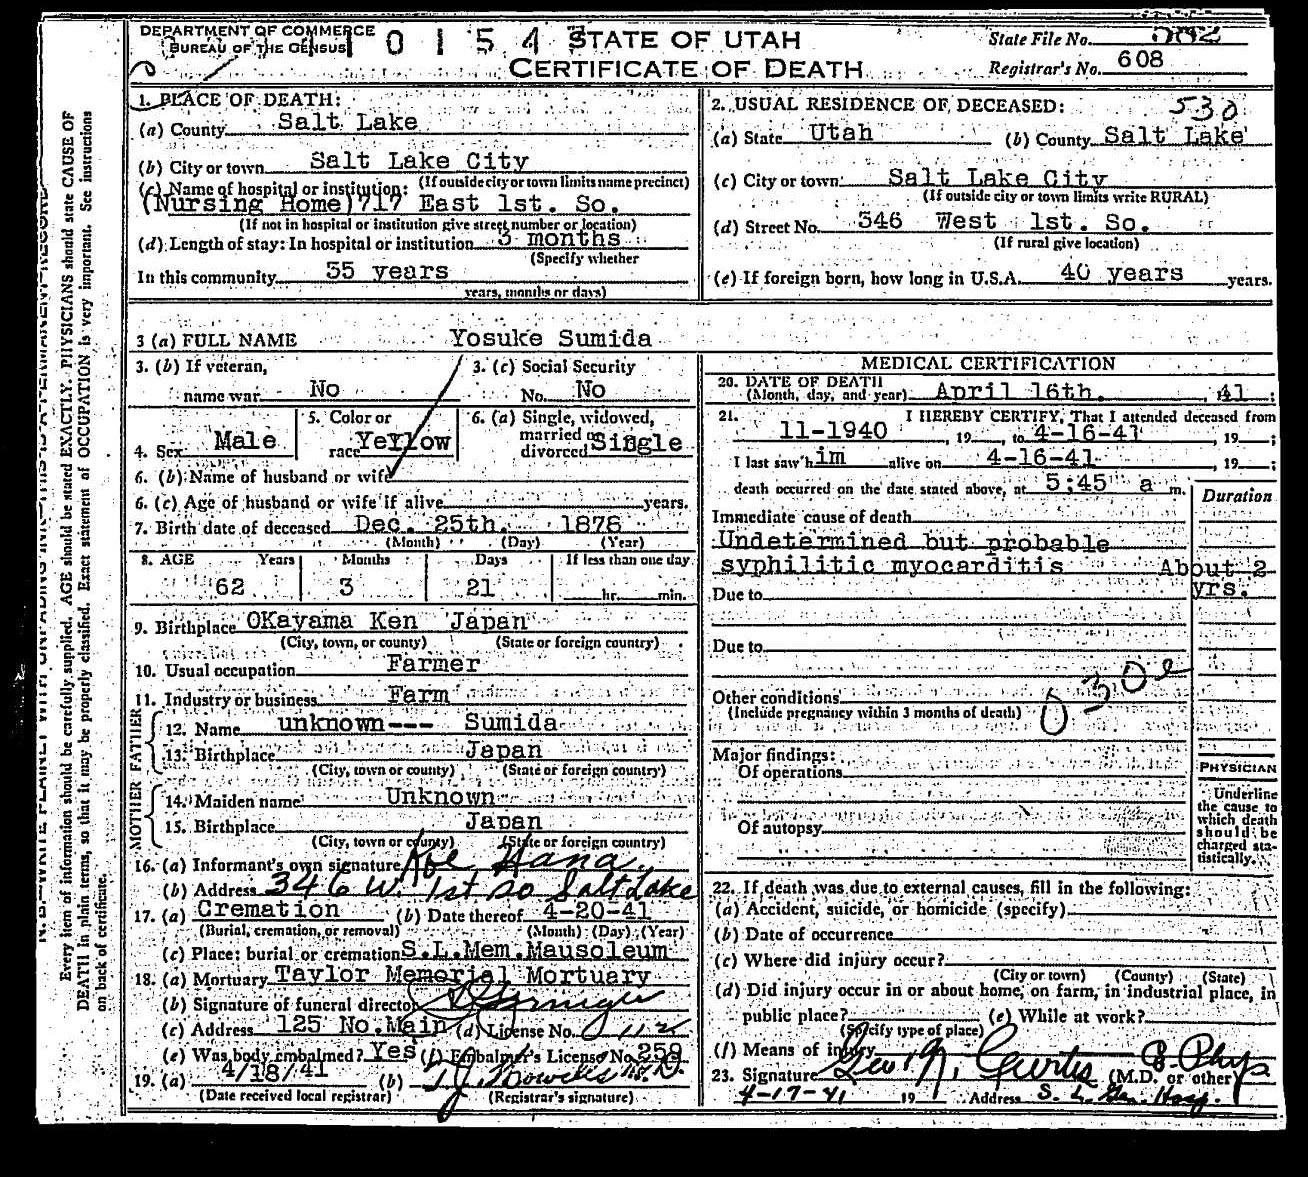 DEPARTMENT OF COMMERCE
BUREAU OF THE CENSUS
STATE OF UTAH
CERTIFICATE OF DEATH
State File No. 582
Registrar's No. 608
1. PLACE OF DEATH:
(a) County Salt Lake
(b) City or town Salt Lake City
(If outside city or town limits name precinct)
(c) Name of hospital or institution:
(Nursing Home) 717 East 1st. So.
(If not in hospital or institution give street number or location)
(d) Length of stay: In hospital or institution 3 months
(Specify whether
In this community 35 years
years, months or days)
2. USUAL RESIDENCE OF DECEASED: 530
(a) State Utah (b) County Salt Lake
(c) City or town Salt Lake City
(If outside city or town limits write RURAL)
(d) Street No. 346 West 1st. So.
(If rural give location)
(e) If foreign born, how long in U.S.A. 40 years years.
3 (a) FULL NAME Yosuke Sumida
3. (b) If veteran,
name war No
3. (c) Social Security
No. No
4. Sex Male
5. Color or
race Yellow
6. (a) Single, widowed,
married or
divorced Single
6. (b) Name of husband or wife
6. (c) Age of husband or wife if alive years.
7. Birth date of deceased Dec. 25th. 1878
(Month) (Day) (Year)
8. AGE Years Months Days If less than one day
62 3 21 hr. min.
9. Birthplace OKayama Ken Japan
(City, town, or county) (State or foreign country)
10. Usual occupation Farmer
11. Industry or business Farm
FATHER
12. Name unknown--- Sumida
13. Birthplace Japan
(City, town or county) (State or foreign country)
MOTHER
14. Maiden name Unknown
15. Birthplace Japan
(City, town or county) (State or foreign country)
16. (a) Informant's own signature Koe Hana
(b) Address 346 W. 1st So Salt Lake
17. (a) Cremation (b) Date thereof 4-20-41
(Burial, cremation, or removal) (Month) (Day) (Year)
(c) Place: burial or cremation S.L.Mem.Mausoleum
18. (a) Mortuary Taylor Memorial Mortuary
(b) Signature of funeral director
(c) Address 125 No.Main (d) License No. 112
(e) Was body embalmed? Yes (f) Embalmer's License No. 259
19. (a) 4/18/41 (b) T.J. Howells M.D.
(Date received local registrar) (Registrar's signature)
MEDICAL CERTIFICATION
20. DATE OF DEATH
(Month, day, and year) April 16th. , 41
21. I HEREBY CERTIFY, That I attended deceased from
11-1940 , 19 , to 4-16-41 , 19 ;
I last saw him alive on 4-16-41 , 19 ;
death occurred on the date stated above, at 5:45 a m.
Duration
Immediate cause of death
Undetermined but probable
syphilitic myocarditis About 2
yrs.
Due to
Due to
Other conditions
(Include pregnancy within 3 months of death)
030e
Major findings:
Of operations
Of autopsy
PHYSICIAN
Underline
the cause to
which death
should be
charged sta-
tistically.
22. If death was due to external causes, fill in the following:
(a) Accident, suicide, or homicide (specify)
(b) Date of occurrence
(c) Where did injury occur?
(City or town) (County) (State)
(d) Did injury occur in or about home, on farm, in industrial place, in
public place? (e) While at work?
(Specify type of place)
(f) Means of injury
23. Signature Geo. N. Curtis (M.D. or other) Phys.
4-17-41 19 Address S. L. Gen. Hosp.
Every item of information should be carefully supplied. AGE should be stated EXACTLY. PHYSICIANS should state CAUSE OF
DEATH in plain terms, so that it may be properly classified. Exact statement of OCCUPATION is very important. See instructions
on back of certificate.